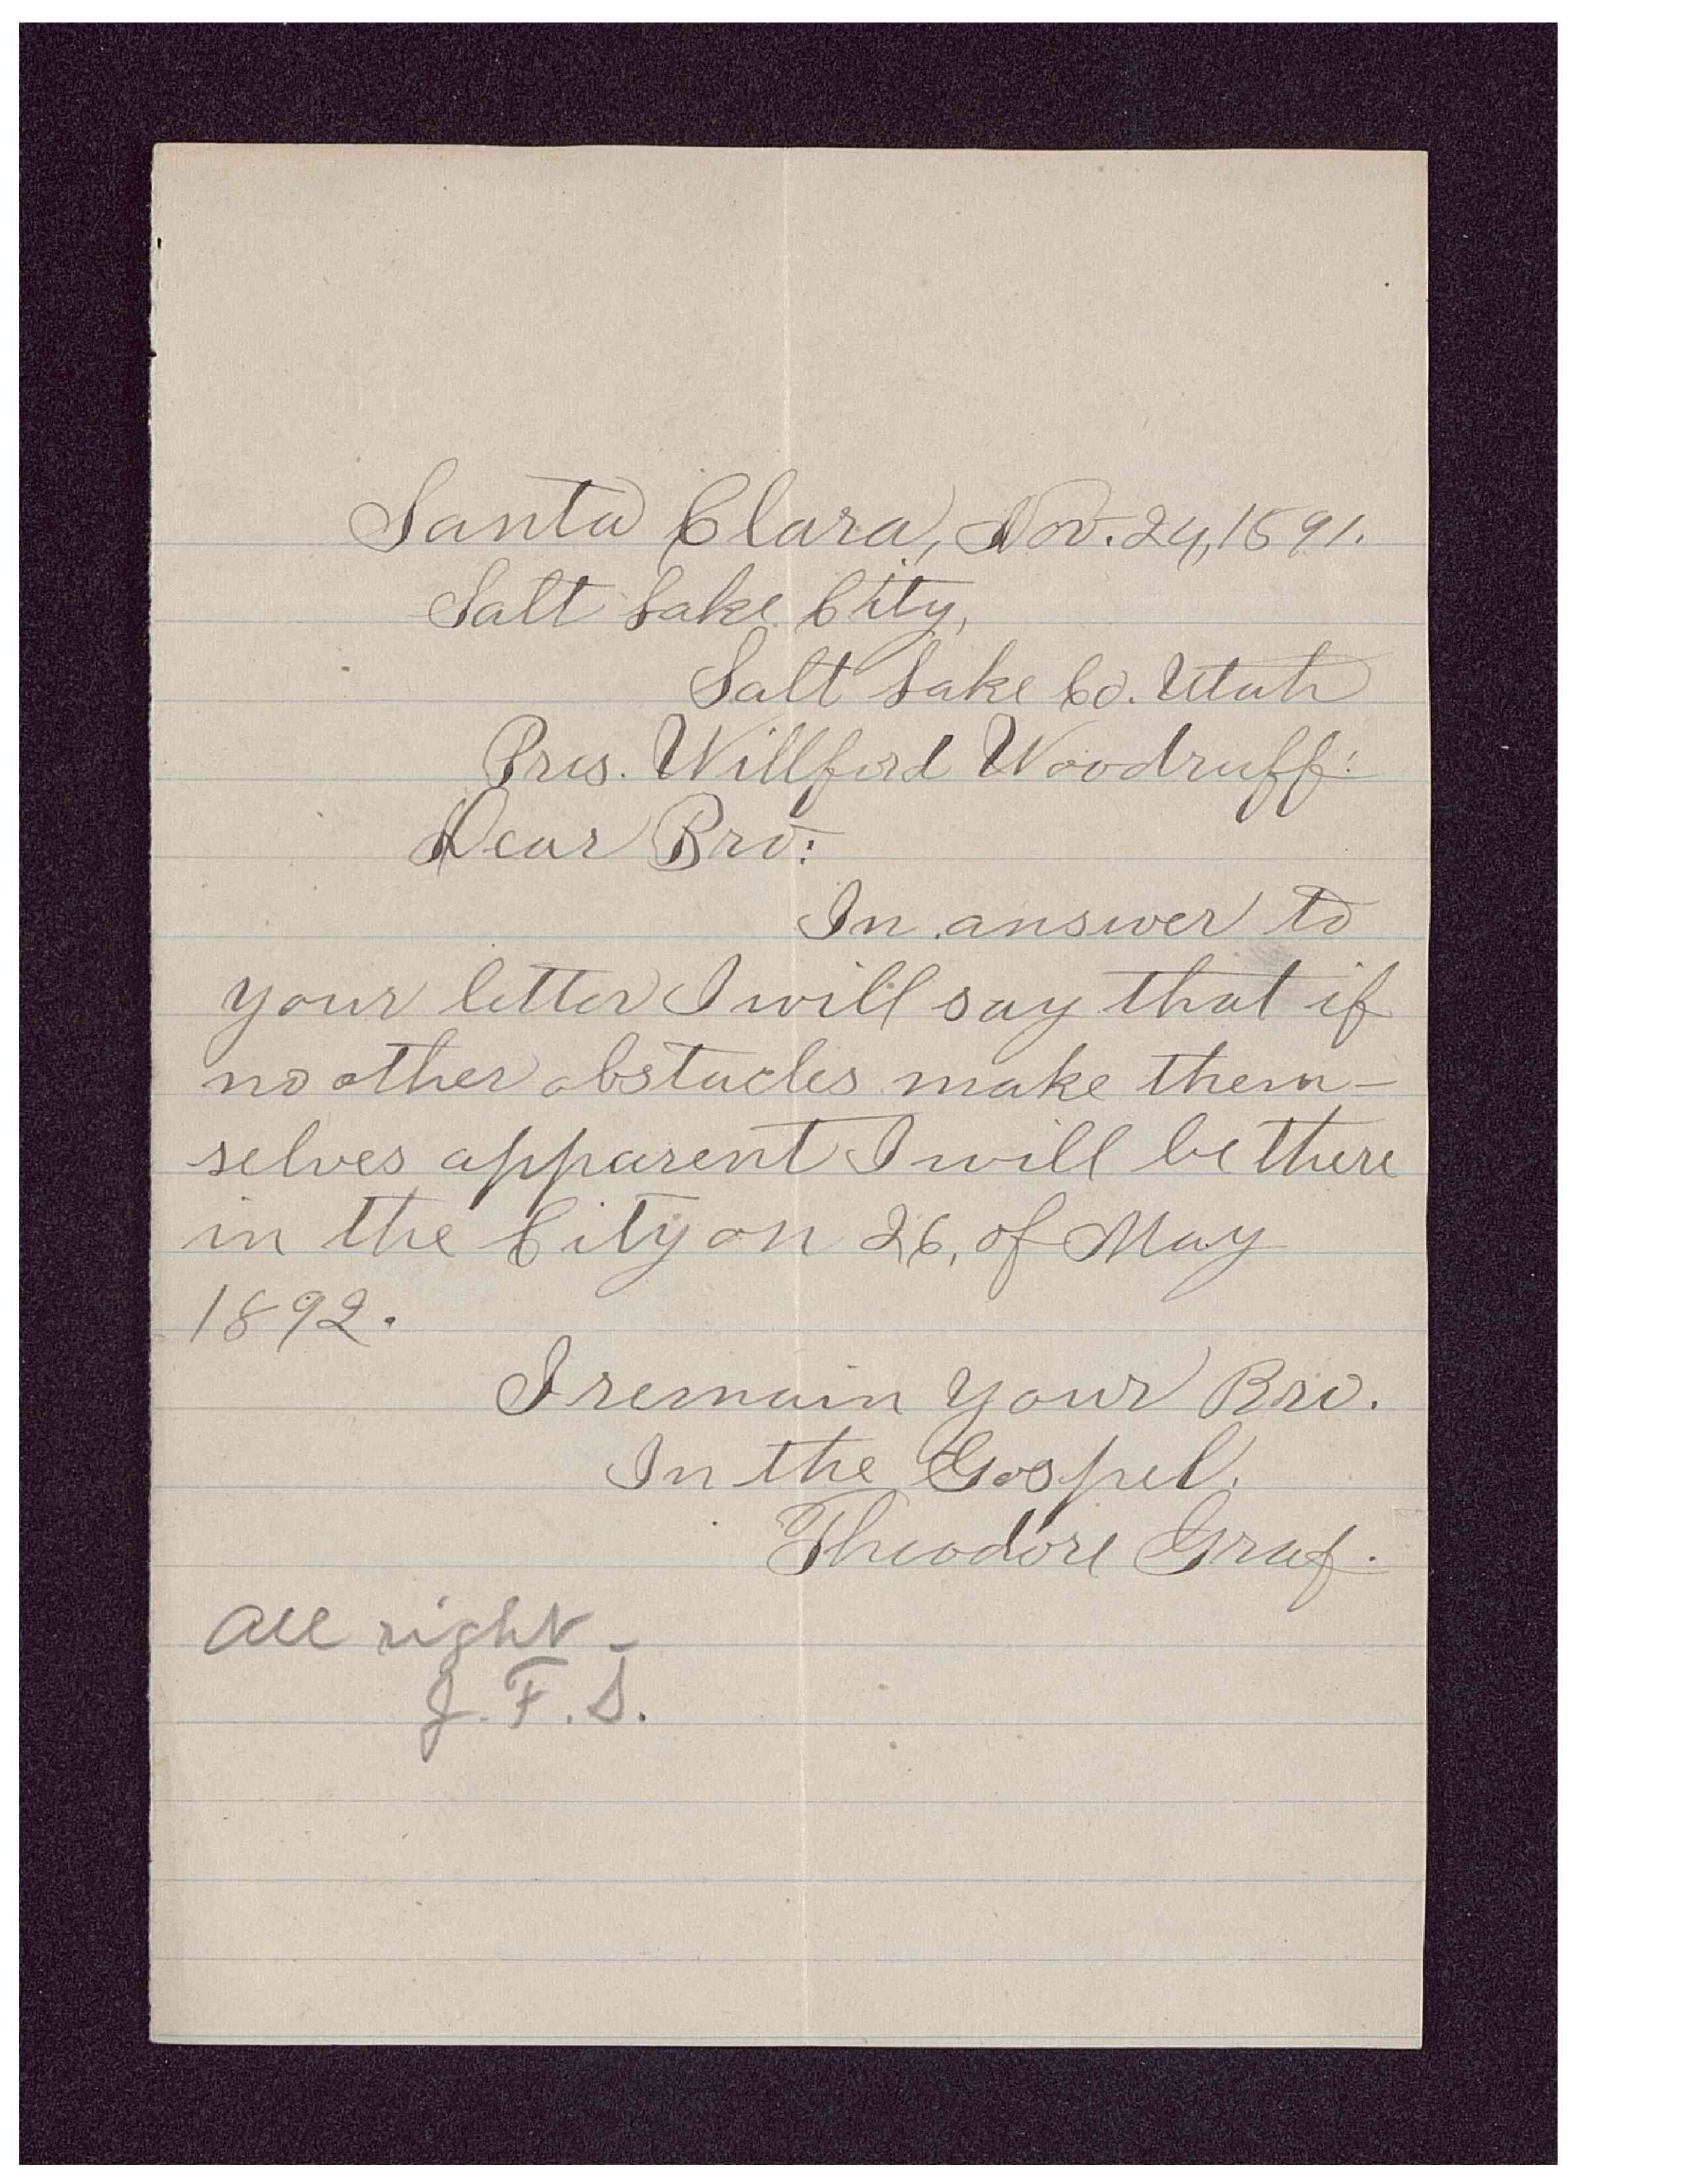 Santa Clara, Nov. 24, 1891.
Salt Lake City,
Salt Lake Co. Utah
Pres. Willford Woodruff:
Dear Bro:
In answer to
your letter I will say that if
no other obstacles make them-
selves apparent I will be there
in the City on 26, of May
1892.
I remain your Bro.
In the Gospel.
Theodore Graf.
All right -
J. F. S.